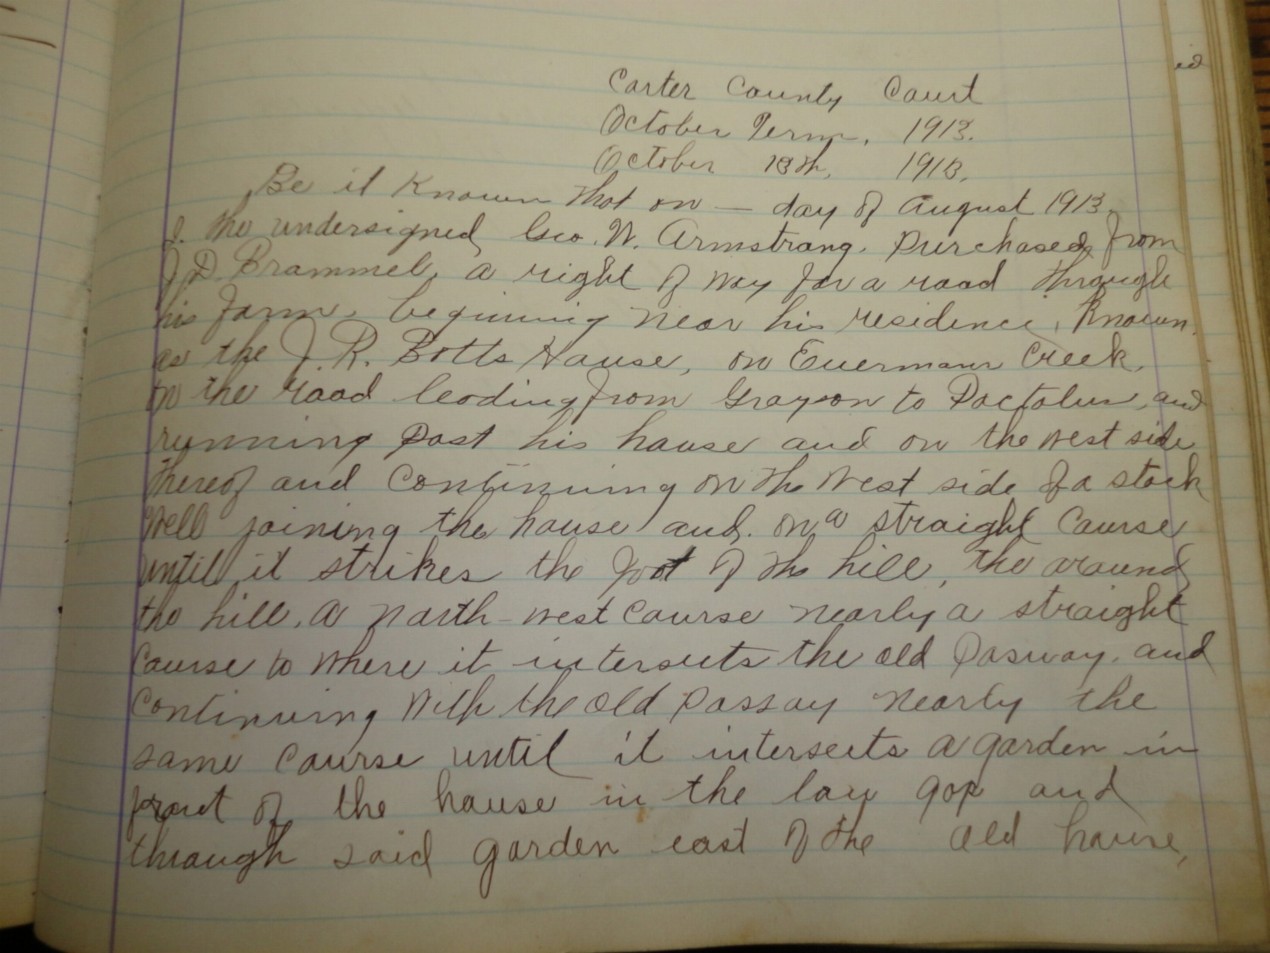 id
Carter County Court
October Term, 1913.
October 13th, 1913.
Be it Known that on — day of August 1913
I. the undersigned Geo. W. Armstrong. purchased from
J D. Brammel, a right of way for a road through
his farm, beginning near his residence, Known
as the J. R. Botts House, on Everman Creek,
on the road leading from Grayson to Pactolus, and
running past his house and on the west side
thereof and continuing on the west side of a stock
well joining the house and on a straight course
until it strikes the foot of the hill, the around
the hill, a north-west course nearly a straight
course to where it intersects the old Passway, and
continuing with the old passay nearly the
same course until it intersects a garden in
front of the house in the low gap and
through said garden east of the old house,